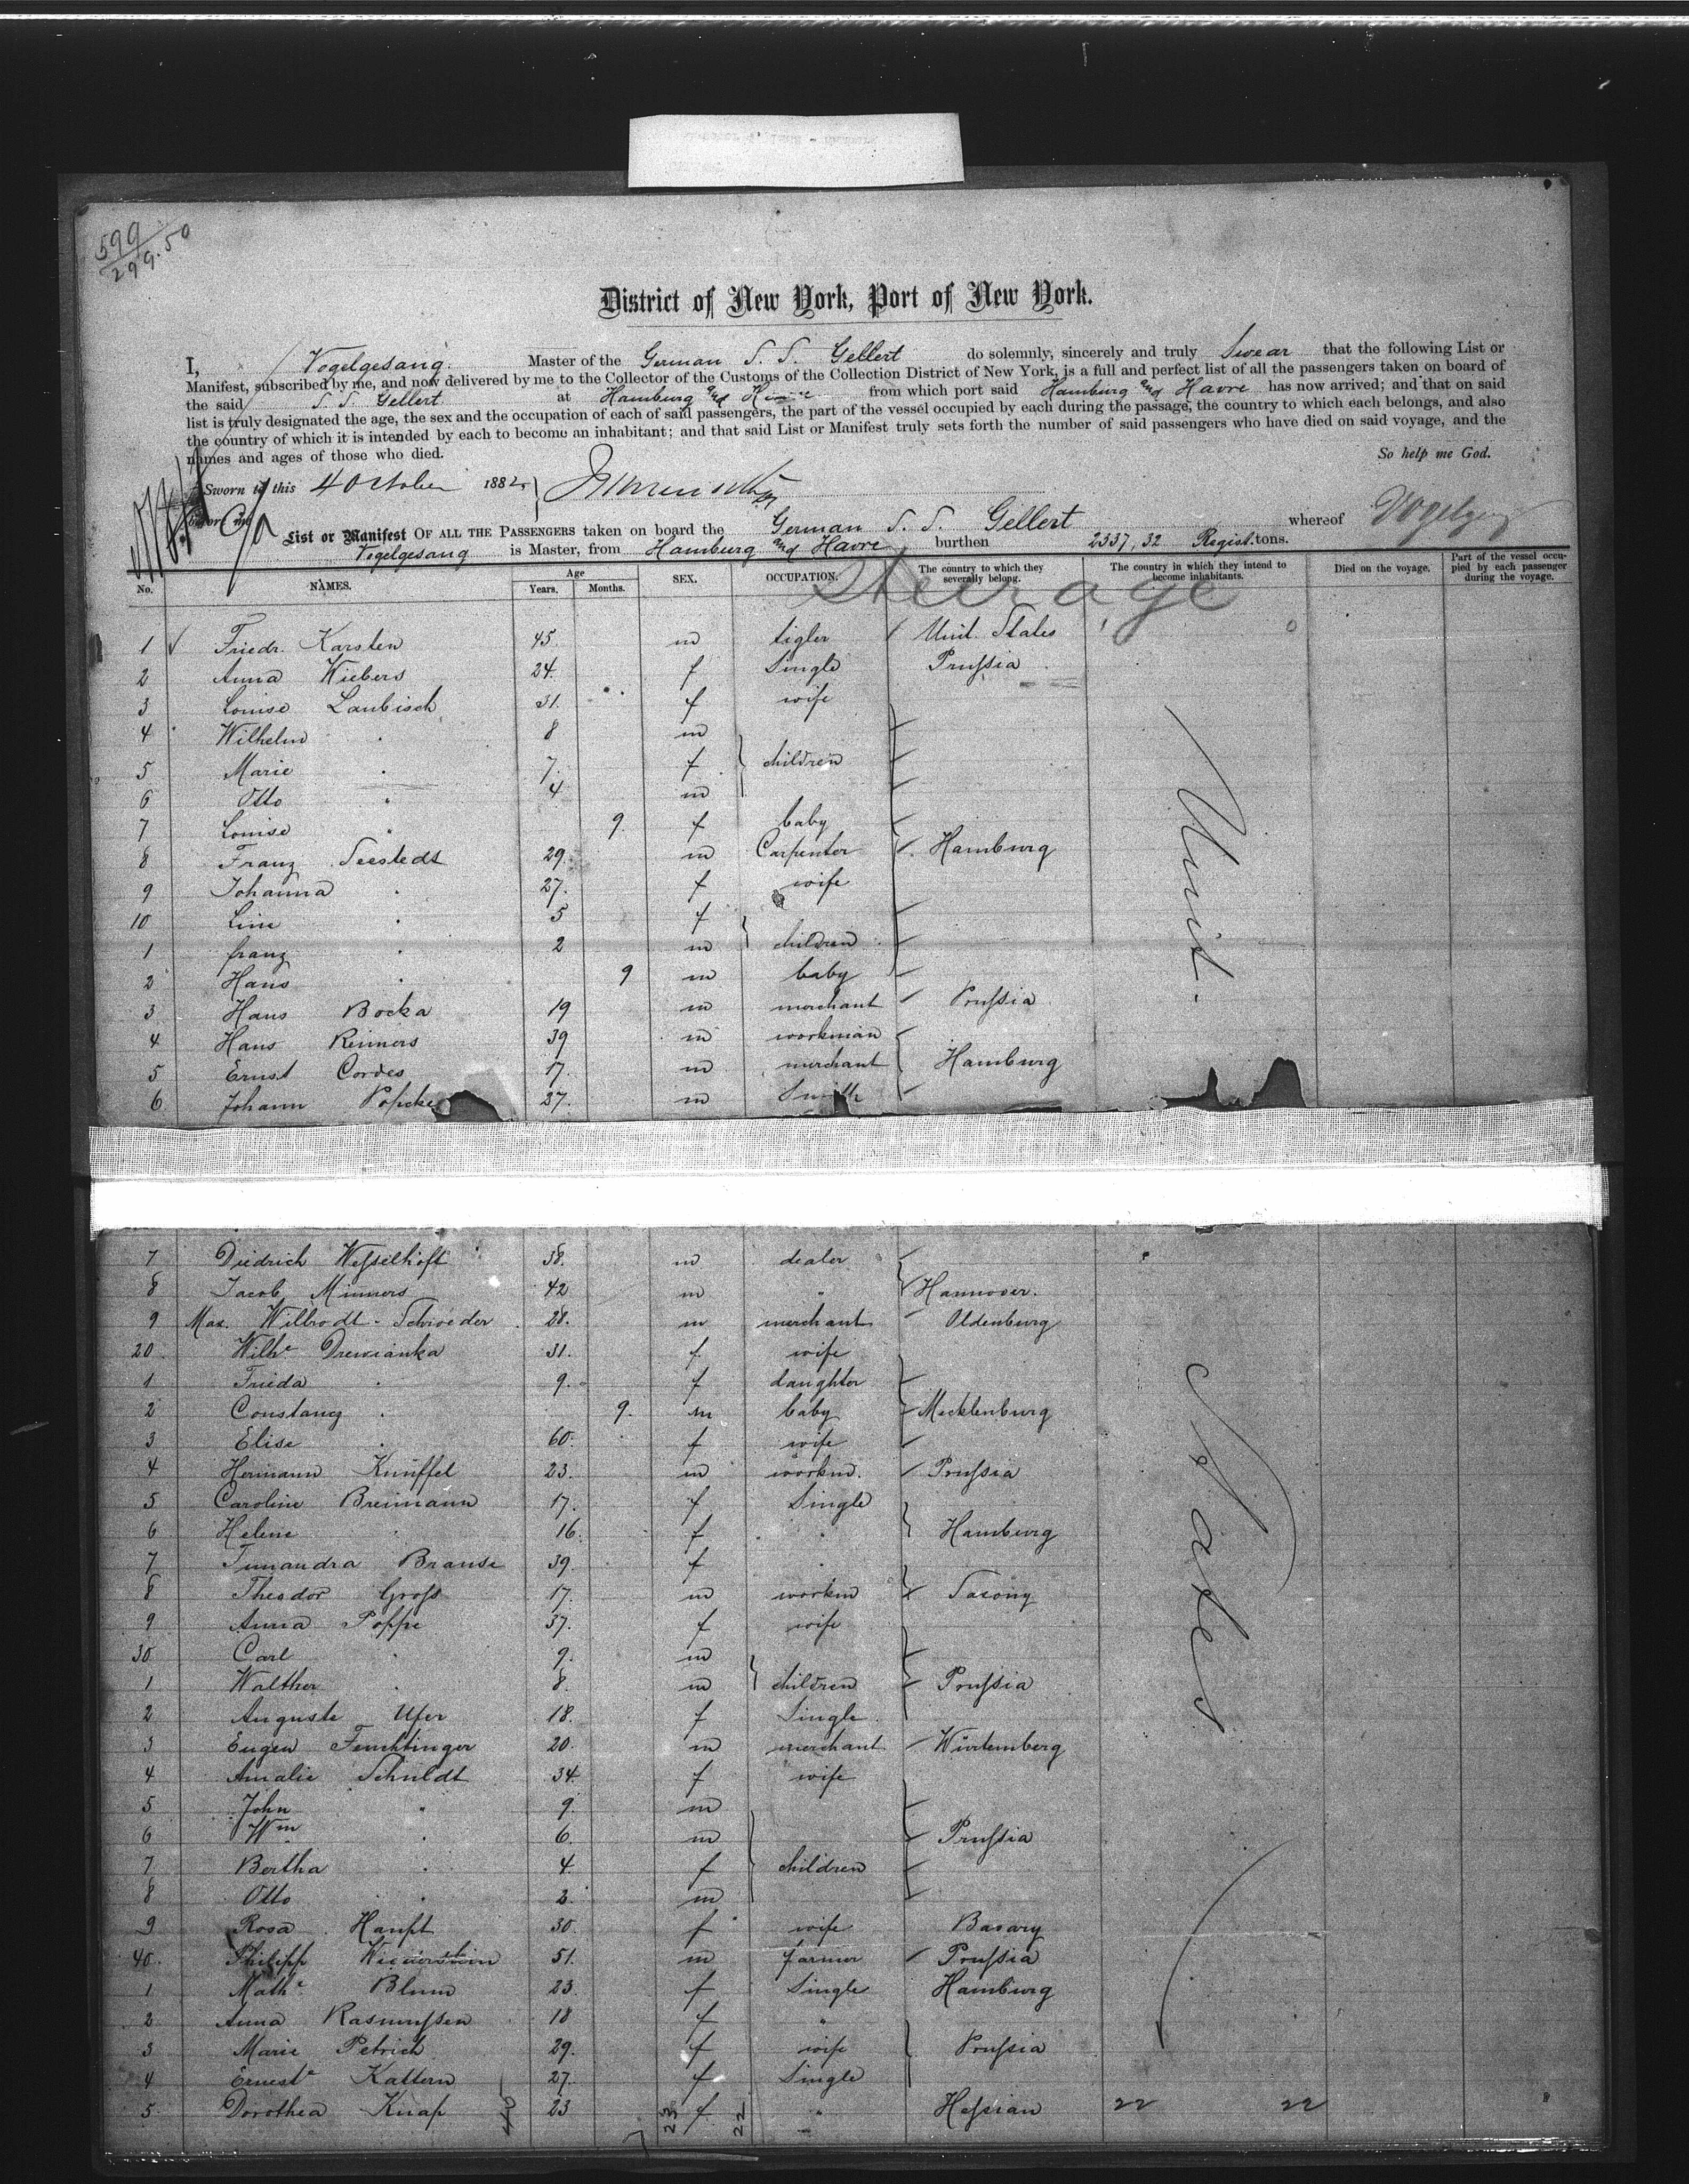 599
299.50
District of New York, Port of New York.
I, Vogelgesang. Master of the German S. S. Gellert do solemnly, sincerely and truly Swear that the following List or
Manifest, subscribed by me, and now delivered by me to the Collector of the Customs of the Collection District of New York, is a full and perfect list of all the passengers taken on board of
the said S. S. Gellert at Hamburg and Havre from which port said Hamburg and Havre has now arrived; and that on said
list is truly designated the age, the sex and the occupation of each of said passengers, the part of the vessel occupied by each during the passage, the country to which each belongs, and also
the country of which it is intended by each to become an inhabitant; and that said List or Manifest truly sets forth the number of said passengers who have died on said voyage, and the
names and ages of those who died. So help me God.
Sworn to this 4 October 1882
List or Manifest OF ALL THE PASSENGERS taken on board the German S. S. Gellert whereof
Vogelgesang is Master, from Hamburg and Havre burthen 2337,32 Regist. tons.
No. NAMES. Age Years. Months. SEX. OCCUPATION. The country to which they severally belong. The country in which they intend to become inhabitants. Died on the voyage. Part of the vessel occupied by each passenger during the voyage.
Steerage
1 Friedr. Karsten 45. m tigler Unit. States
2 Anna Wiebers 24. f Single Prussia
3 Louise Laubisch 31. f wife
4 Wilhelm 8 m
5 Marie 7. f children
6 Otto " 4 m
7 Louise " 9. f baby
8 Franz Seestedt 29. m Carpenter Hamburg
9 Johanna 27. f wife
10 Line 5 f
1 franz 2 m children
2 Hans 9 m baby
3 Hans Bocka 19 m merchant Prussia
4 Hans Reimers 39 m workman
5 Ernst Cordes 17. m merchant Hamburg
6 Johann Popcke 27. m Smith
Unit.
7 Diedrich Wesselhoft 38. m dealer
8 Jacob Minners 42 m " Hannover.
9 Max. Wilbrodt-Schroeder 28. m merchant Oldenburg
20 Wilhe Drewianka 31. f wife
1 Frieda 9. f daughter
2 Constanz 9. m baby Mecklenburg
3 Elise 60. f wife
4 Hermann Knüffel 23. m workm. Prussia
5 Caroline Breimann 17. f Single
6 Helene 16. f " Hamburg
7 Tunandra Brause 39. f "
8 Theodor Gross 17. m workm Saxony
9 Anna Poppe 37. f wife
30 Carl 9. m
1 Walther 8. m children Prussia
2 Auguste Ufer 18. f Single
3 Eugen Feuchtinger 20. m merchant Würtemberg
4 Amalie Schuldt 34. f wife
5 John " 9. m
6 Wm 6. m Prussia
7 Bertha 4. f children
8 Otto " 2. m
9 Rosa Haupt 30. f wife Bavary
40. Philipp 51. m farmer Prussia
1 Mathe Blum 23. f Single Hamburg
2 Anna Rasmussen 18 f "
3 Marie Petrich 29. f wife Prussia
4 Erneste Kattern 27. f Single
5 Dorothea Knap 23 f " Hessian 22 22
States
23 22